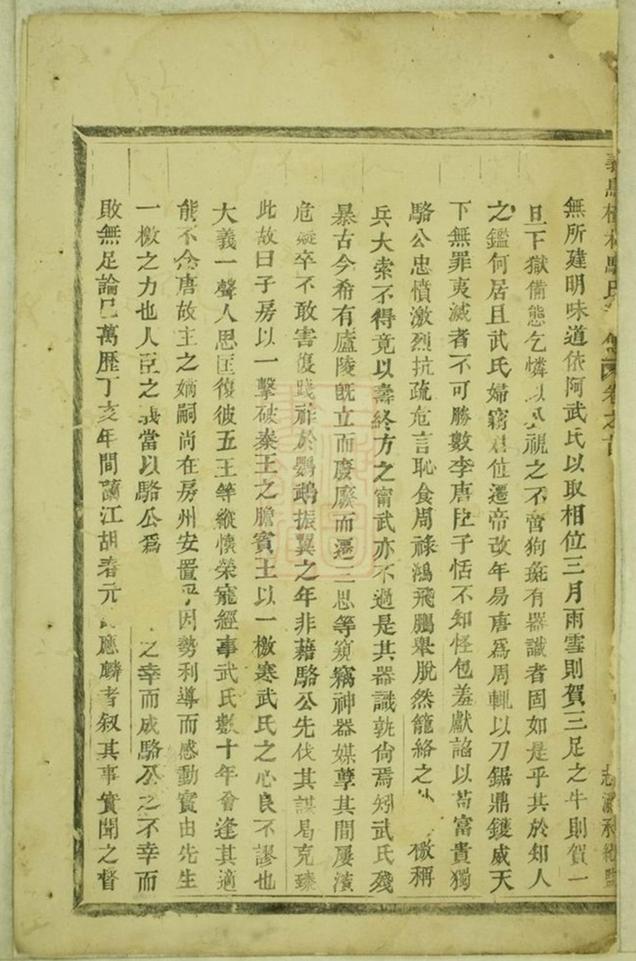 無所建明味道依阿武氏以取相位三月雨雪則賀三足之牛則賀一
旦下獄備態乞憐以視之不啻狗彘有器識者固如是乎其於知人
之鑑何居且武氏婦竊君位遷帝改年易唐爲周輒以刀鋸鼎鑊威天
下無罪夷滅者不可勝數李唐臣子恬不知怪包羞獻諂以苟富貴獨
駱公忠憤激烈抗疏危言恥食周祿鴻飛鵬舉脫然籠絡之 檄稱
兵大索不得竟以壽終方之甯武亦不過是其器識孰尙焉矧武氏殘
暴古今希有廬陵旣立而廢廢而遷三思等窺竊神器媒孽其間屢濱
危疑卒不敢害復踐祚於鸚鵡振翼之年非藉駱公先伐其謀曷克臻
此故曰子房以一擊破秦王之膽賓王以一檄寒武氏之心良不謬也
大義一聲人思匡復彼五王等縱懷榮寵經事武氏數十年會逢其適
能不念唐故主之嫡嗣尚在房州安置乎因勢利導而感動實由先生
一檄之力也人臣之義當以駱公爲 之幸而成駱公之不幸而
敗無足論已萬歷丁亥年間蘭江胡春元 應麟者叙其事實聞之督